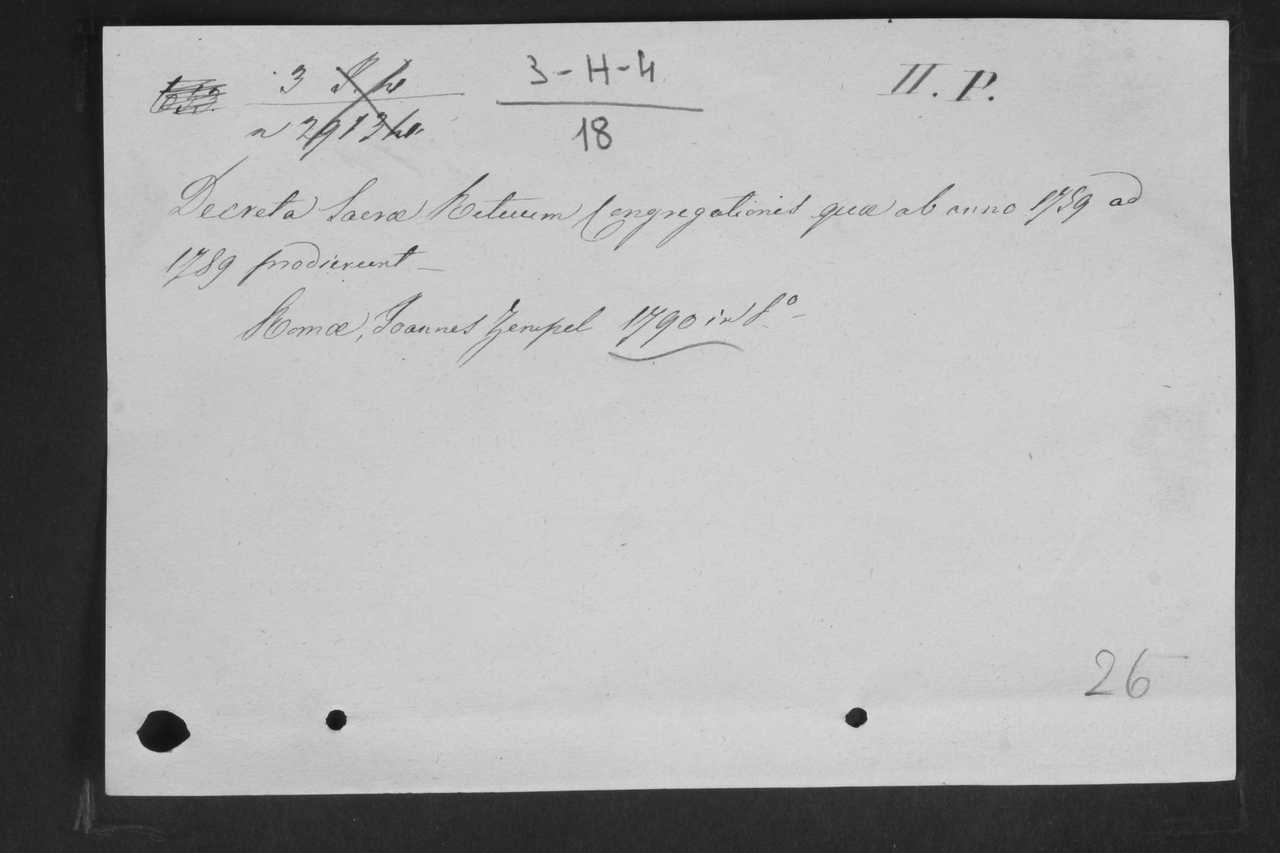 3-H-4
18
II. P.
Decreta Sacræ Rituum Congregationis quæ ab anno 1759 ad
1789 prodierunt_
Romæ, Joannes Zempel 1790 in 8.º-
26